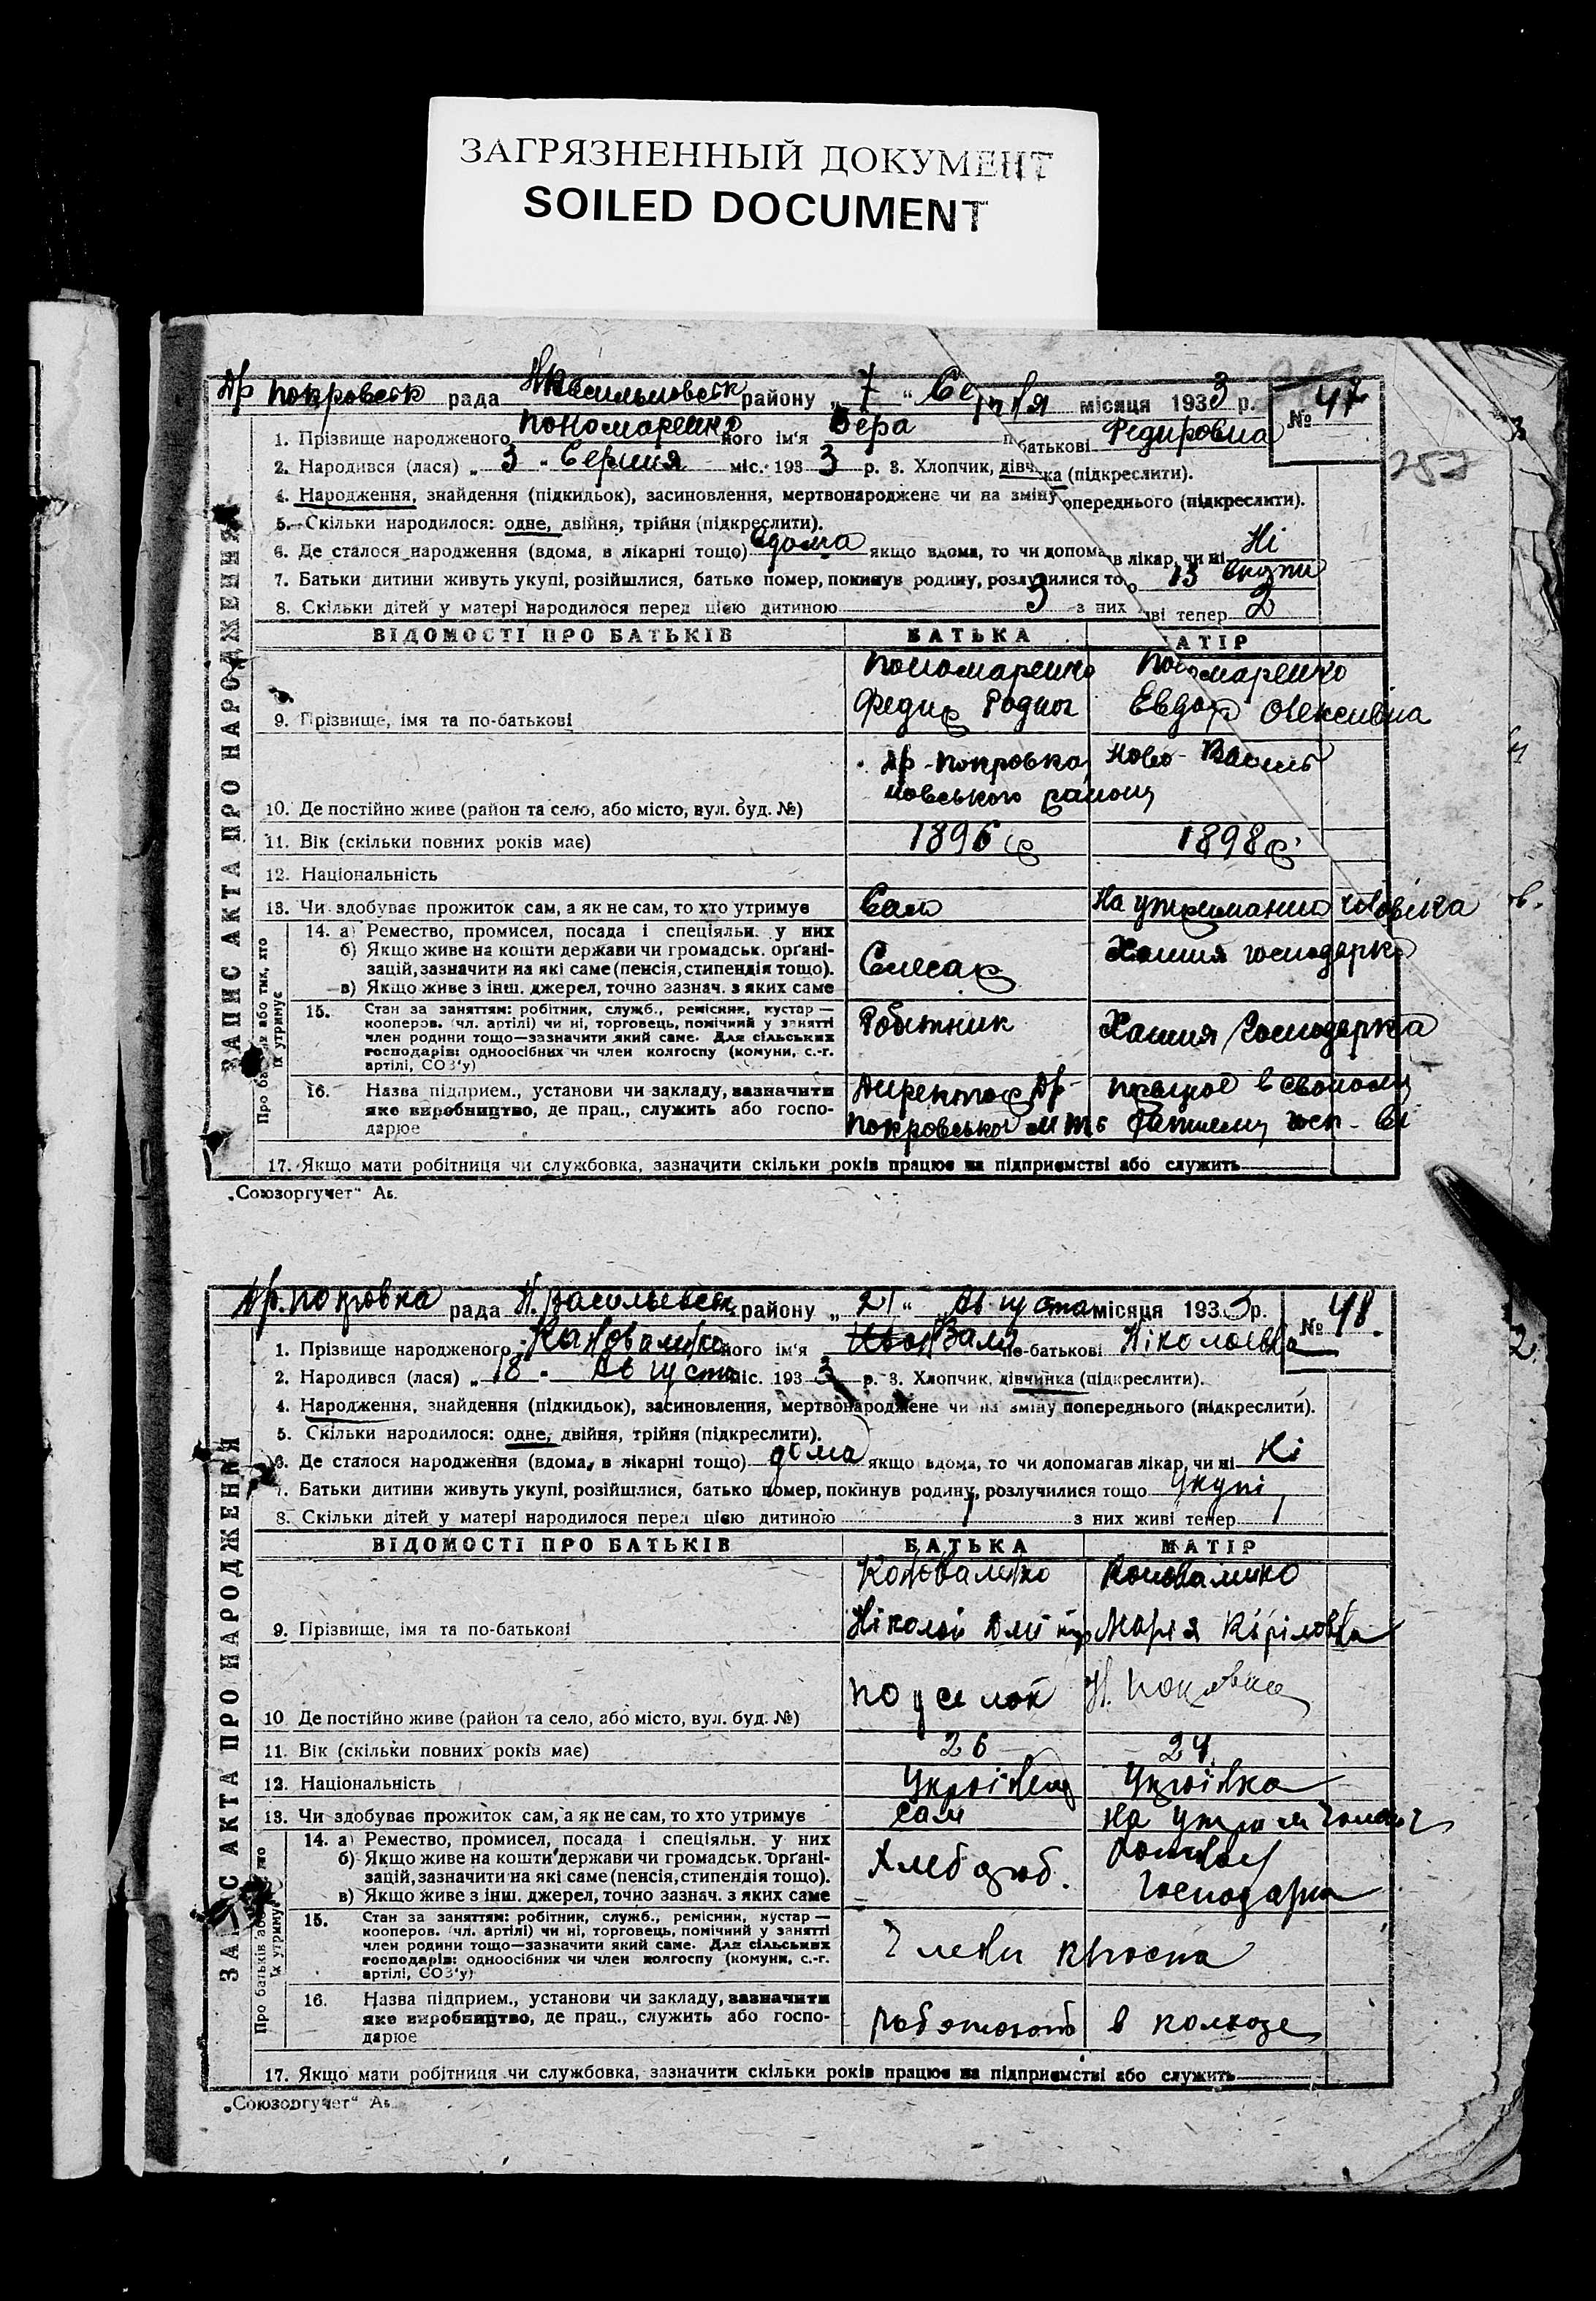 ЗАГРЯЗНЕННЫЙ ДОКУМЕНТ
SOILED DOCUMENT
Др покровськ рада района району „ 7 “ Серпня місяця 1933 р. № 47
1. Прізвище народженого Пономаренко його ім'я Вера батькові Федировна
2. Народився (лася) „ 3 „ Серпня міс. 1933 р. 3. Хлопчик, дівч ка (підкреслити).
257
4. Народження, знайдення (підкидьок), засиновлення, мертвонароджене чи на зміну опереднього (підкреслити).
5. Скільки народилося: одне, двійня, трійня (підкреслити).
6. Де сталося народження (вдома, в лікарні тощо) вдома якщо вдома, то чи допома в лікар, чи ні Ні
7. Батьки дитини живуть укупі, розійшлися, батько помер, покинув родину, розлучилися то
8. Скільки дітей у матері народилося перед цією дитиною 3 з них ві тепер 2
ВІДОМОСТІ ПРО БАТЬКІВ БАТЬКА АТІР
Пономаренко Пономаренко
9. Прізвище, імя та по-батькові Федир Родион Евдок Олексиевна
Др-покровка Ново-Василь
10. Де постійно живе (район та село, або місто, вул. буд. №) ковського району
11. Вік (скільки повних років має) 1896 р 1898 р
12. Національність
13. Чи здобуває прожиток сам, а як не сам, то хто утримує Сам На утриманню чоловіка
14. а) Ремество, промисел, посада і спеціяльн. у них
б) Якщо живе на кошти держави чи громадськ. організацій, зазначити на які саме (пенсія, стипендія тощо). Слесар господарка
в) Якщо живе з інш. джерел, точно зазнач. з яких саме
15. Стан за заняттям: робітник, служб., ремісник, кустар —
кооперов. (чл. артілі) чи ні, торговець, помічний у занятті Робитник господарка
член родини тощо—зазначити який саме. Для сільських
господарів: одноосібних чи член колгоспу (комуни, с.-г.
артілі, СОЗ'у)
16. Назва підприєм., установи чи закладу, зазначити Директор Др-
яке виробництво, де прац., служить або госпо- покровської мтс
дарює
17. Якщо мати робітниця чи службовка, зазначити скільки років працює на підприємстві або служить
ЗАПИС АКТА ПРО НАРОДЖЕННЯ
„Союзоргучет“
Др. покровка рада Н. Васильевськ району „ 21 “ Августа місяця 1933 р. № 48.
1. Прізвище народженого Коноваленко його ім'я Валя по-батькові Ніколаевна
2. Народився (лася) „ 18 „ Августа міс. 1933 р. 3. Хлопчик, дівчинка (підкреслити).
4. Народження, знайдення (підкидьок), засиновлення, мертвонароджене чи на зміну попереднього (підкреслити).
5. Скільки народилося: одне, двійня, трійня (підкреслити).
6. Де сталося народження (вдома, в лікарні тощо) дома якщо вдома, то чи допомагав лікар, чи ні Ні
7. Батьки дитини живуть укупі, розійшлися, батько помер, покинув родину, розлучилися тощо Укупі
8. Скільки дітей у матері народилося перед цією дитиною 1 з них живі тепер 1
ВІДОМОСТІ ПРО БАТЬКІВ БАТЬКА МАТІР
Коноваленко Коноваленко
9. Прізвище, імя та по-батькові Ніколай Дмітр Марія Кіріловна
10 Де постійно живе (район та село, або місто, вул. буд. №) Поселок Н. Покровка
11. Вік (скільки повних років має) 26 24
12. Національність Україн Українка
13. Чи здобуває прожиток сам, а як не сам, то хто утримує сам на утрим чолов
14. а) Ремество, промисел, посада і спеціяльн. у них
б) Якщо живе на кошти держави чи громадськ. організацій, зазначити на які саме (пенсія, стипендія тощо). Хлебороб. Господарка
в) Якщо живе з інш. джерел, точно зазнач. з яких саме
15. Стан за заняттям: робітник, служб., ремісник, кустар —
кооперов. (чл. артілі) чи ні, торговець, помічний у занятті
член родини тощо—зазначити який саме. Для сільських
господарів: одноосібних чи член колгоспу (комуни, с.-г.
артілі, СОЗ'у)
16. Назва підприєм., установи чи закладу, зазначити
яке виробництво, де прац., служить або госпо- работают в колхозе
дарює
17. Якщо мати робітниця чи службовка, зазначити скільки років працює на підприємстві або служить
„Союзоргучет“